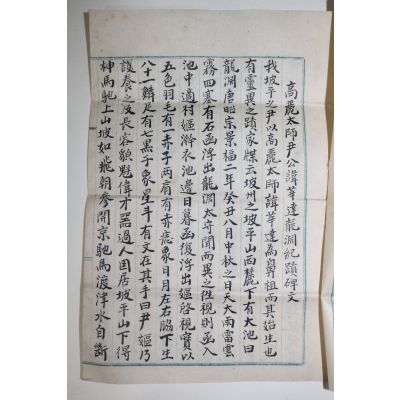 高麗太師尹公諱莘達龍淵紀蹟碑文
我坡平之尹以高麗太師諱莘達為鼻祖而其始生也
有靈異之蹟家牒云坡州之坡平山西麓下有大池曰
龍淵唐昭宗景福二年癸丑八月中秋之日天大雨雷雲
霧四塞有石函浮出龍淵太守聞而異之往視則函入
池中適村嫗澣衣池邊日暮函復浮出嫗啓視實以
五色羽毛有一赤子兩肩有赤痣象日月左右脇下生
八十一鱗足有七黑子象星斗有文在其手曰尹嫗乃
護養之及長容貌魁偉才器過人因居坡平山下得
神馬馳上山坡如飛朝參開京馳馬渡津水自斷